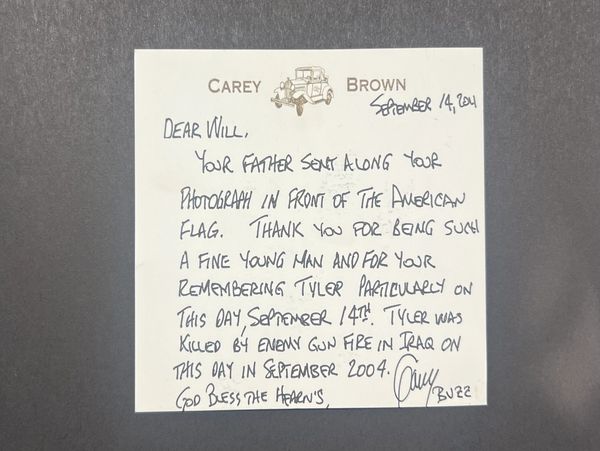 CAREY BROWN
SEPTEMBER 14, 2011
DEAR WILL,
YOUR FATHER SENT ALONG YOUR
PHOTOGRAPH IN FRONT OF THE AMERICAN
FLAG. THANK YOU FOR BEING SUCH
A FINE YOUNG MAN AND FOR YOUR
REMEMBERING TYLER PARTICULARLY ON
THIS DAY, SEPTEMBER 14TH. TYLER WAS
KILLED BY ENEMY GUN FIRE IN IRAQ ON
THIS DAY IN SEPTEMBER 2004.
GOD BLESS THE HEARN'S,
Carey
BUZZ